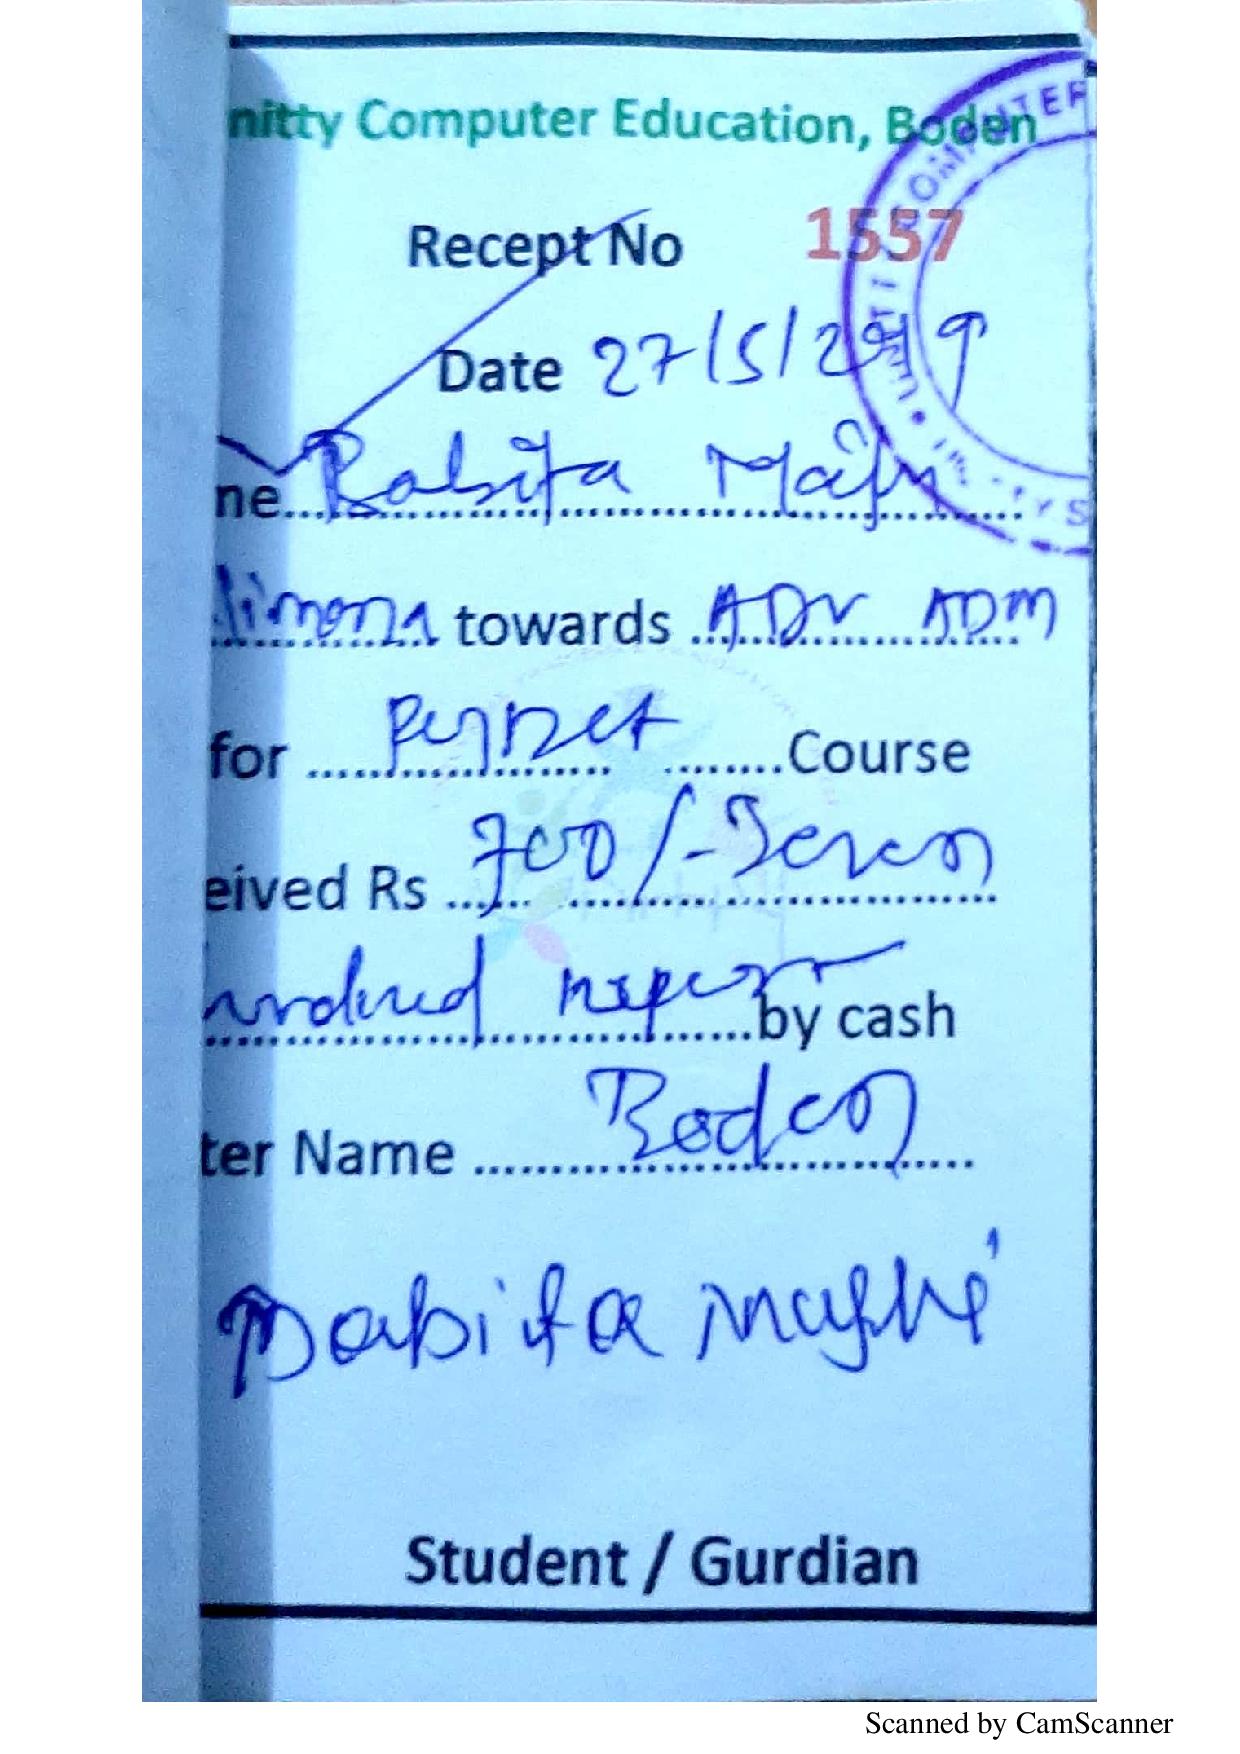 nitty Computer Education, Boden
Recept No 1557
Date 27/5/2019
ne Babita Majhi
towards ADV ADM
for Course
eived Rs 700/- Seven
undred rupees by cash
ter Name Boden
Babita majhi
Student / Gurdian
COMPUTER
Scanned by CamScanner